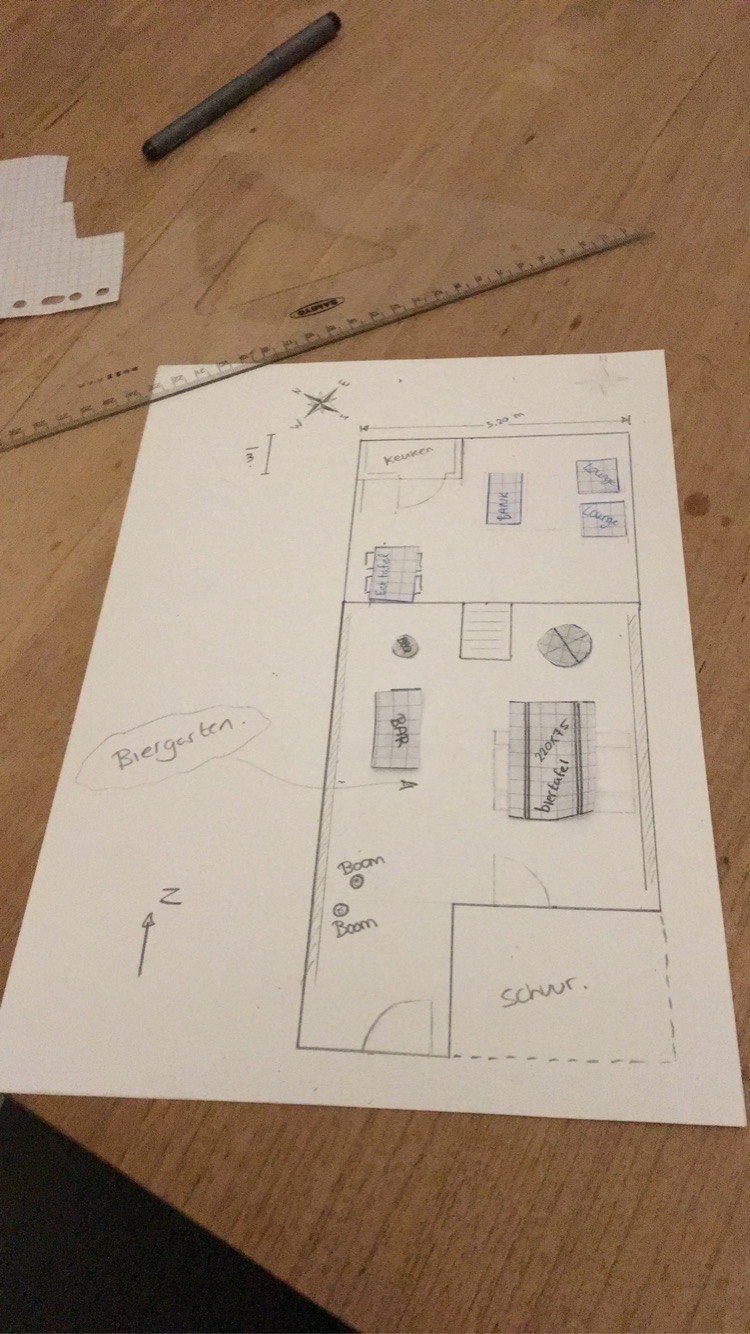 SAMYO
N
E
W
5.20 m
1m.
Keuken
BANK
Lounge
Lounge
Eettafel
BAR
220x75
biertafel
Biergarten.
Boom
Boom
N
Schuur.